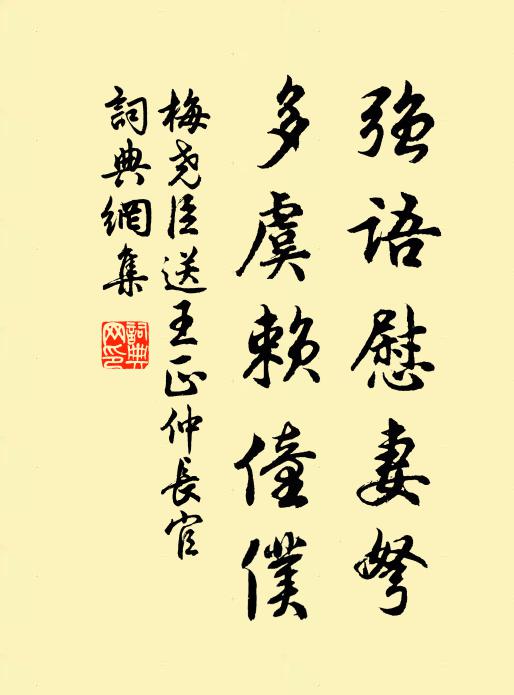 強語慰妻孥
多虞賴僮僕
梅堯臣送王正仲長官
詞典網集
詞典網印